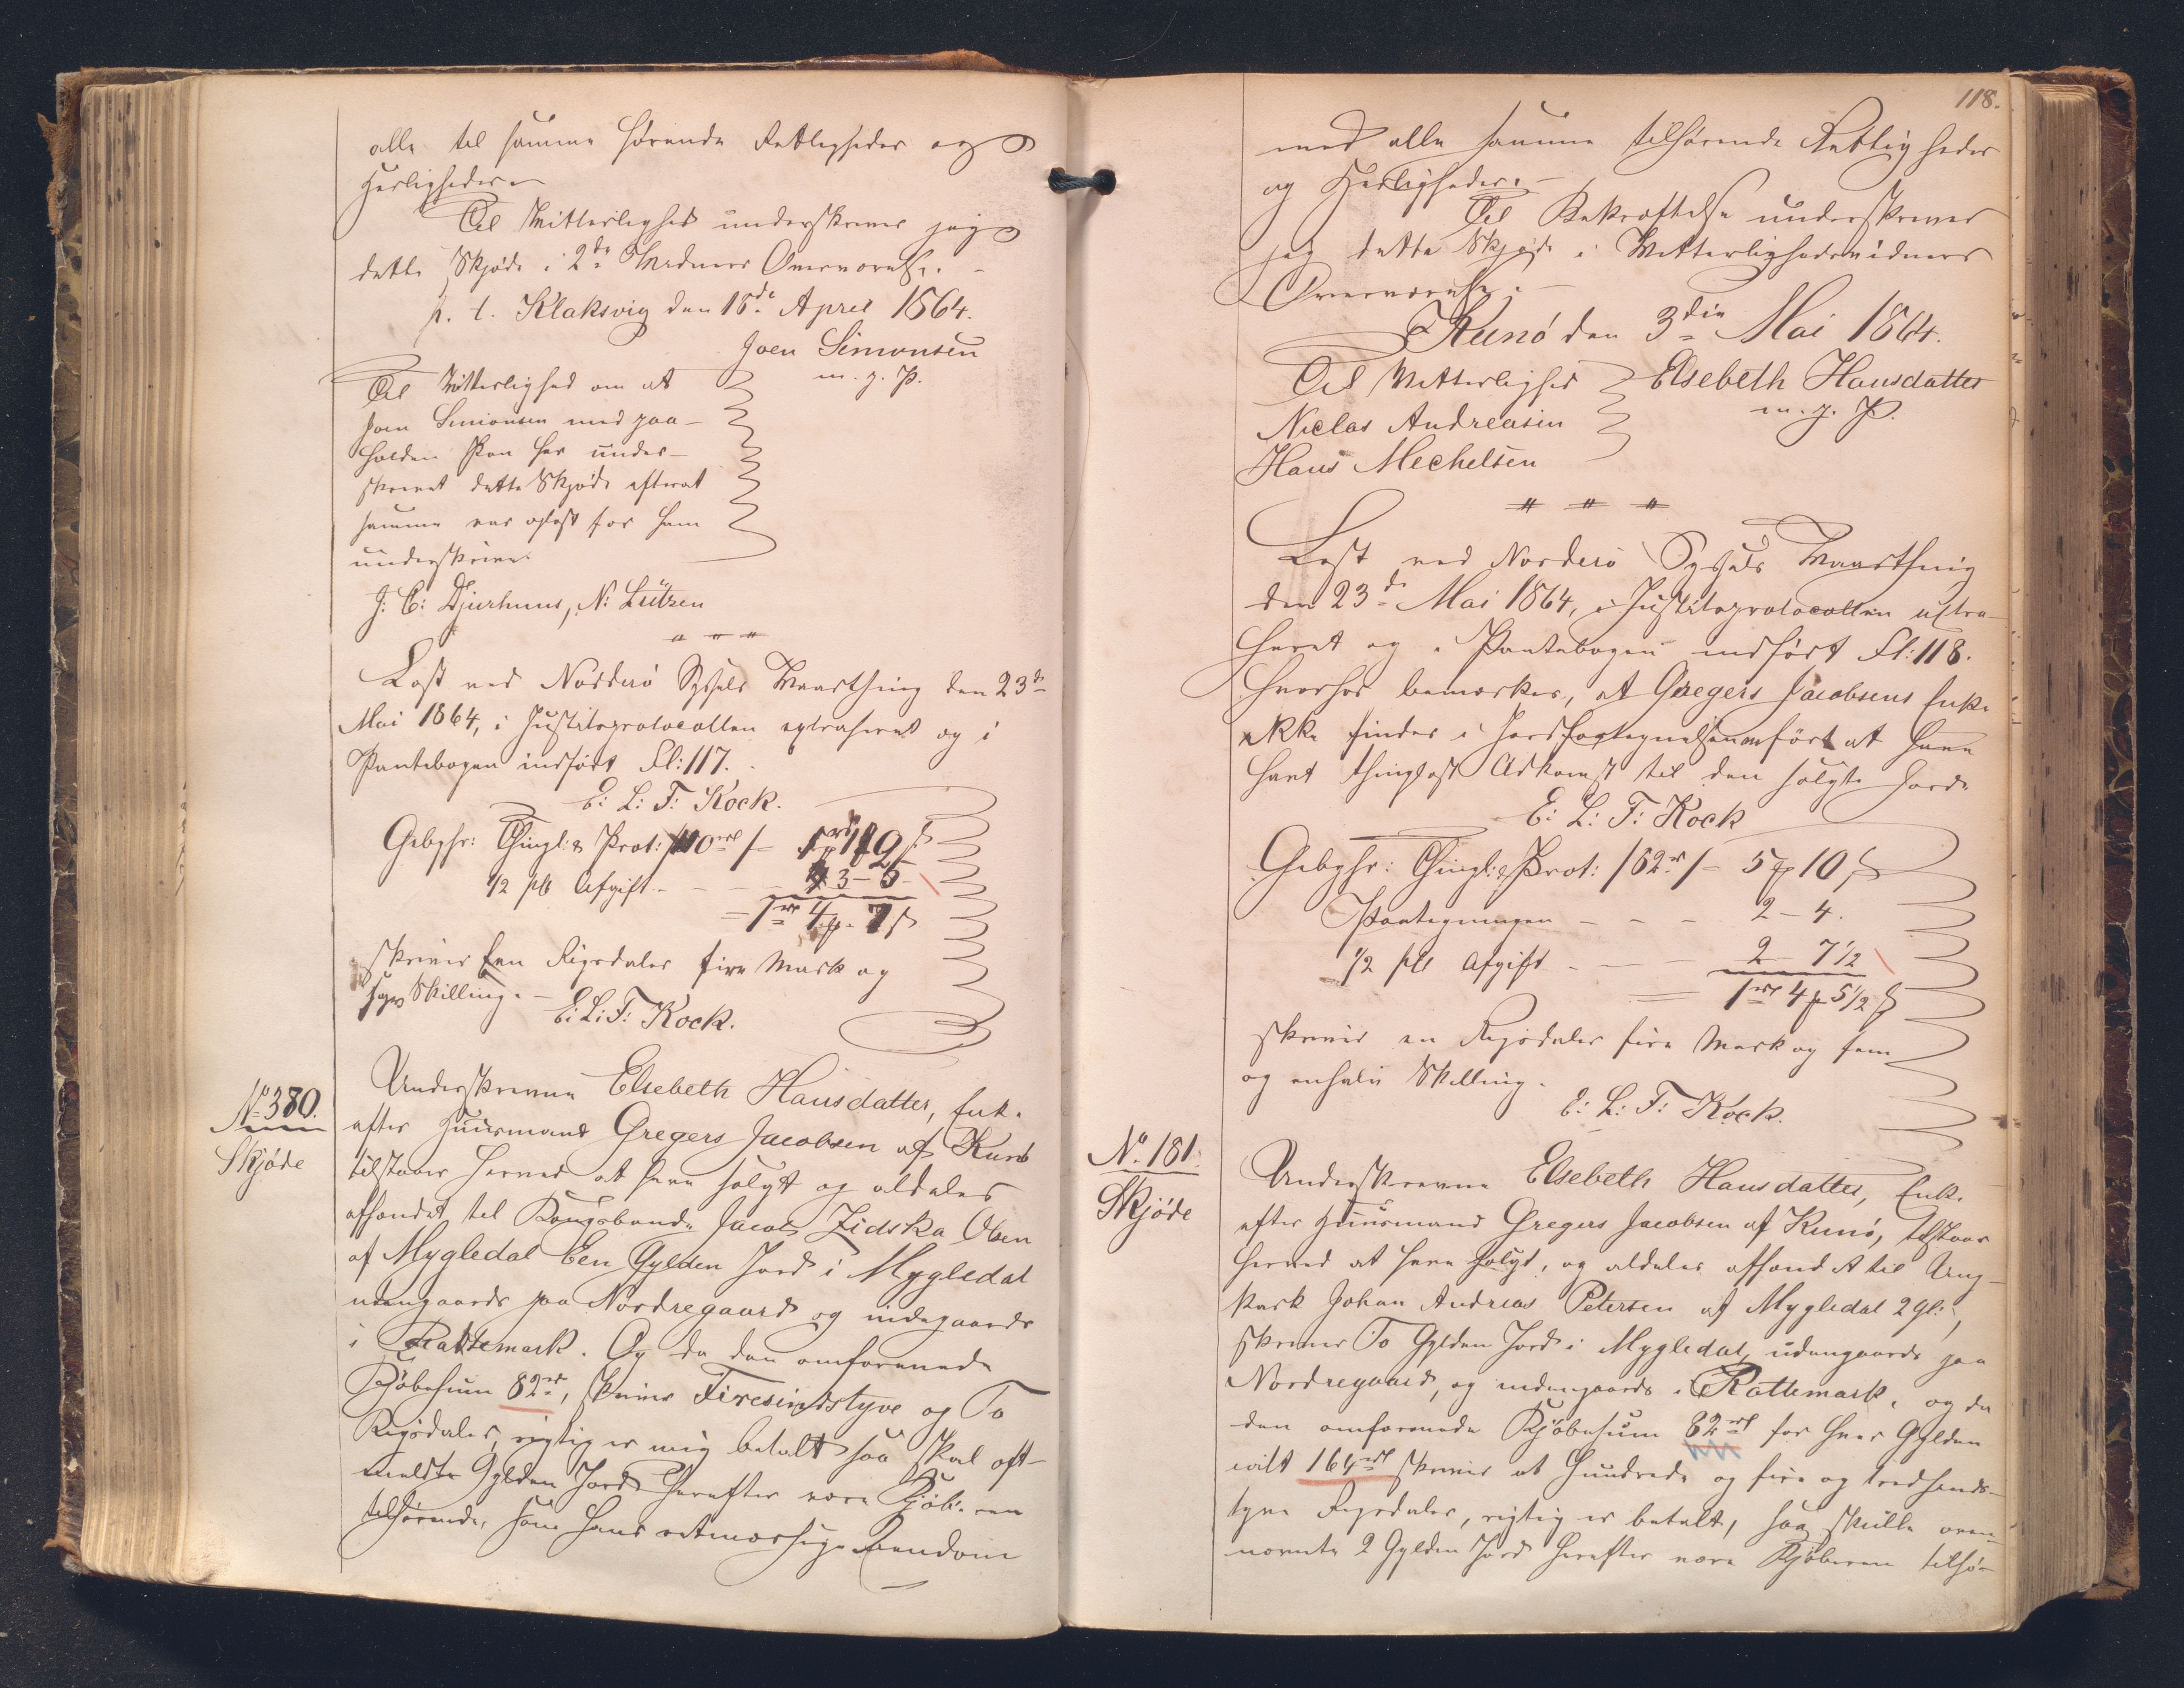 alle til samme hørende Rettigheder og
Herligheder.
Til Vitterlighed underskrives jeg
dette Skjøde i 2de Vidners Overværelse. -
p. t. Klaksvig den 18de April 1864.
Joen Simonsen
m. f. P.
Til Vitterlighed om at
Joen Simonsen med paa-
holden Pen har under-
skrevet dette Skjøde efterat
samme var oplæst for ham
underskrives
J: C: Djurhuus, N: Lützen
Læst ved Norderø Syssels Vaarthing den 23de
Mai 1864, i Justitsprotocollen extraheret og i
Pantebogen indført Fl: 117.
E: L: F: Kock.
Gebyhr: Thingl: & Prot:
1/2 pCt Afgift
= 1 rd 4 mk 7 s
skriver Een Rigsdaler fire Mark og
syv Skilling. -
E: L: F: Kock.
No 380.
Skjøde
Underskrevne Elsebeth Hansdatter, Enke
efter Huusmand Gregers Jacobsen af Kunö
tilstaaer herved at have solgt og aldeles
afhændet til Kongsbonde Jacob Zidska Olsen
af Mygledal Een Gylden Jord i Mygledal
udengaards paa Nordregaard og indegaards
i Rattemark. Og da den omforenede
Kjøbesum 82 rd, skriver Firesindstyve og To
Rigsdaler, rigtig er mig betalt saa skal oft-
meldte Gylden Jord herefter være Kjøberen
tilhørende, som hans retmæssige Eiendom
118.
med alle samme tilhørende Rettigheder
og Herligheder. -
Til Bekræftelse underskrives
jeg dette Skjøde i Vitterlighedsvidners
Overværelse. -
Kunö den 3die Mai 1864.
Til Vitterlighed
Elsebeth Hansdatter
Niclas Andreasen
m. f. P.
Hans Mechelsen
Læst ved Norderö Syssels Vaarthing
den 23de Mai 1864, i Justitsprotocollen extra-
heret og i Pantebogen indført Fl: 118.
hvorhos bemærkes, at Gregers Jacobsens Enke
ikke findes i Jordfortegnelsen anført at have
havt thinglæst Adkomst til den solgte Jord.
E: L: F: Kock
Gebyhr: Thingl: & Prot: /62 rd/ - 5 mk 10 s
Paategningen - - - 2 - 4.
1/2 pCt Afgift - - - 2 - 7 1/2
= 1 rd 4 mk 5 1/2 s
skriver en Rigsdaler fire Mark og fem
og enhalv Skilling.
E: L: F: Kock.
No. 181.
Skjøde
Underskrevne Elsebeth Hansdatter, Enke
efter Huusmand Gregers Jacobsen af Kunö, tilstaar
herved at have solgt, og aldeles afhændet til Ung-
karl Johan Andreas Petersen af Mygledal 2 gl:,
skriver To Gylden Jord i Mygledal, udengaards paa
Nordregaard, og indengaards i Rattemark, og da
den omforenede Kjøbesum 82 rd for hver Gylden
ialt 164 rd skriver et Hundrede og fire og tredsinds-
tyve Rigsdaler, rigtig er betalt, saa skulle oven-
nævnte 2 Gylden Jord herefter være Kjøberen tilhø-